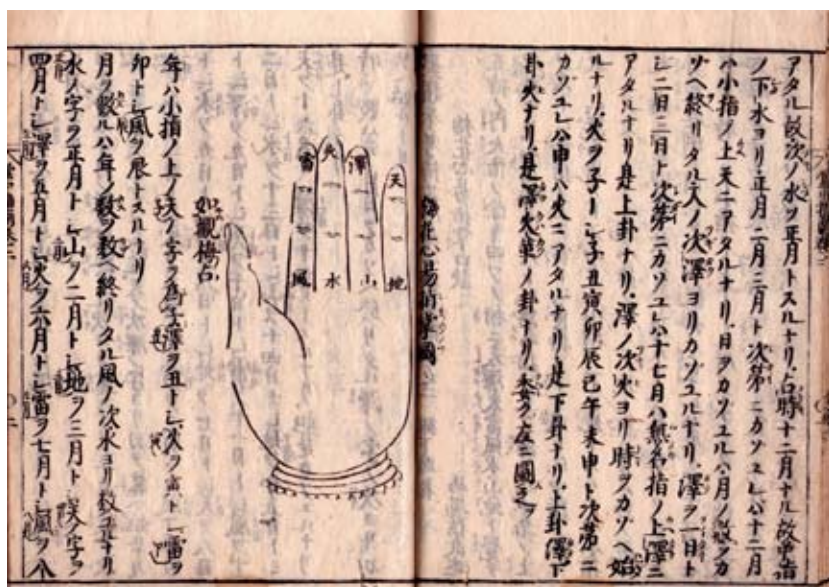 アタル故次ノ水ヲ正月トスルナリ占時十二月ナル故
ノ下水ヨリ正月二月三月ト次第ニカソユレハ十二月
ハ小指ノ上天ニアタルナリ日ヲカゾユルハ月ノ数ヲカ
ゾヘ終リタル天ノ次澤ヨリカゾユルナリ澤ヲ一日ト
シ二日三日ト次第ニカゾユレハ十七月ハ無名指ノ上澤ニ
アタルナリ是上卦ナリ澤ノ次火ヨリ時ヲカゾヘ始
ルナリ火ヲ子トシ子丑寅卯辰巳午未申ト次第ニ
カゾユレハ申ハ火ニアタルナリ是下卦ナリ上卦澤下
卦火ナリ是澤火革ノ卦ナリ委ク左ニ圖之
梅花心易
天
澤
火
雷
地
山
水
風
如觀梅占
年ハ小指ノ上ノ天ノ字ヲ為子澤ヲ丑トシ火ヲ寅トシ雷ヲ
卯トシ風ヲ辰トスルナリ
月ヲ數ルハ年ノ數ヲ数ヘ終リタル風ノ次水ヨリ数ユルナリ
水ノ字ヲ正月トシ山ヲ二月トシ地ヲ三月トシ天ノ字ヲ
四月トシ澤ヲ五月トシ火ヲ六月トシ雷ヲ七月トシ風ヲ八